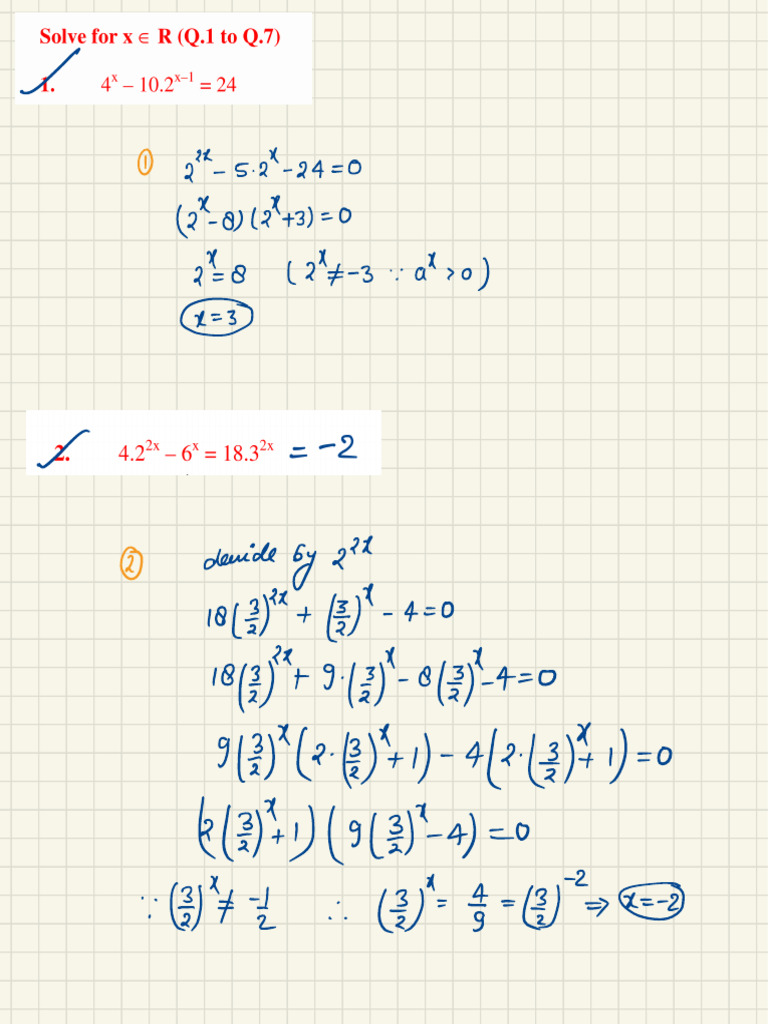 Solve for x ∈ R (Q.1 to Q.7)
1. 4ˣ – 10.2ˣ⁻¹ = 24
① 2²ˣ – 5·2ˣ – 24 = 0
(2ˣ – 8)(2ˣ + 3) = 0
2ˣ = 8 (2ˣ ≠ –3 ∵ aˣ > 0)
x = 3
2. 4.2²ˣ – 6ˣ = 18.3²ˣ = –2
② devide by 2²ˣ
18(3/2)²ˣ + (3/2)ˣ – 4 = 0
18(3/2)²ˣ + 9·(3/2)ˣ – 8(3/2)ˣ – 4 = 0
9(3/2)ˣ(2·(3/2)ˣ + 1) – 4(2·(3/2)ˣ + 1) = 0
(2(3/2)ˣ + 1)(9(3/2)ˣ – 4) = 0
∵ (3/2)ˣ ≠ –1/2 ∴ (3/2)ˣ = 4/9 = (3/2)⁻² ⇒ x = –2